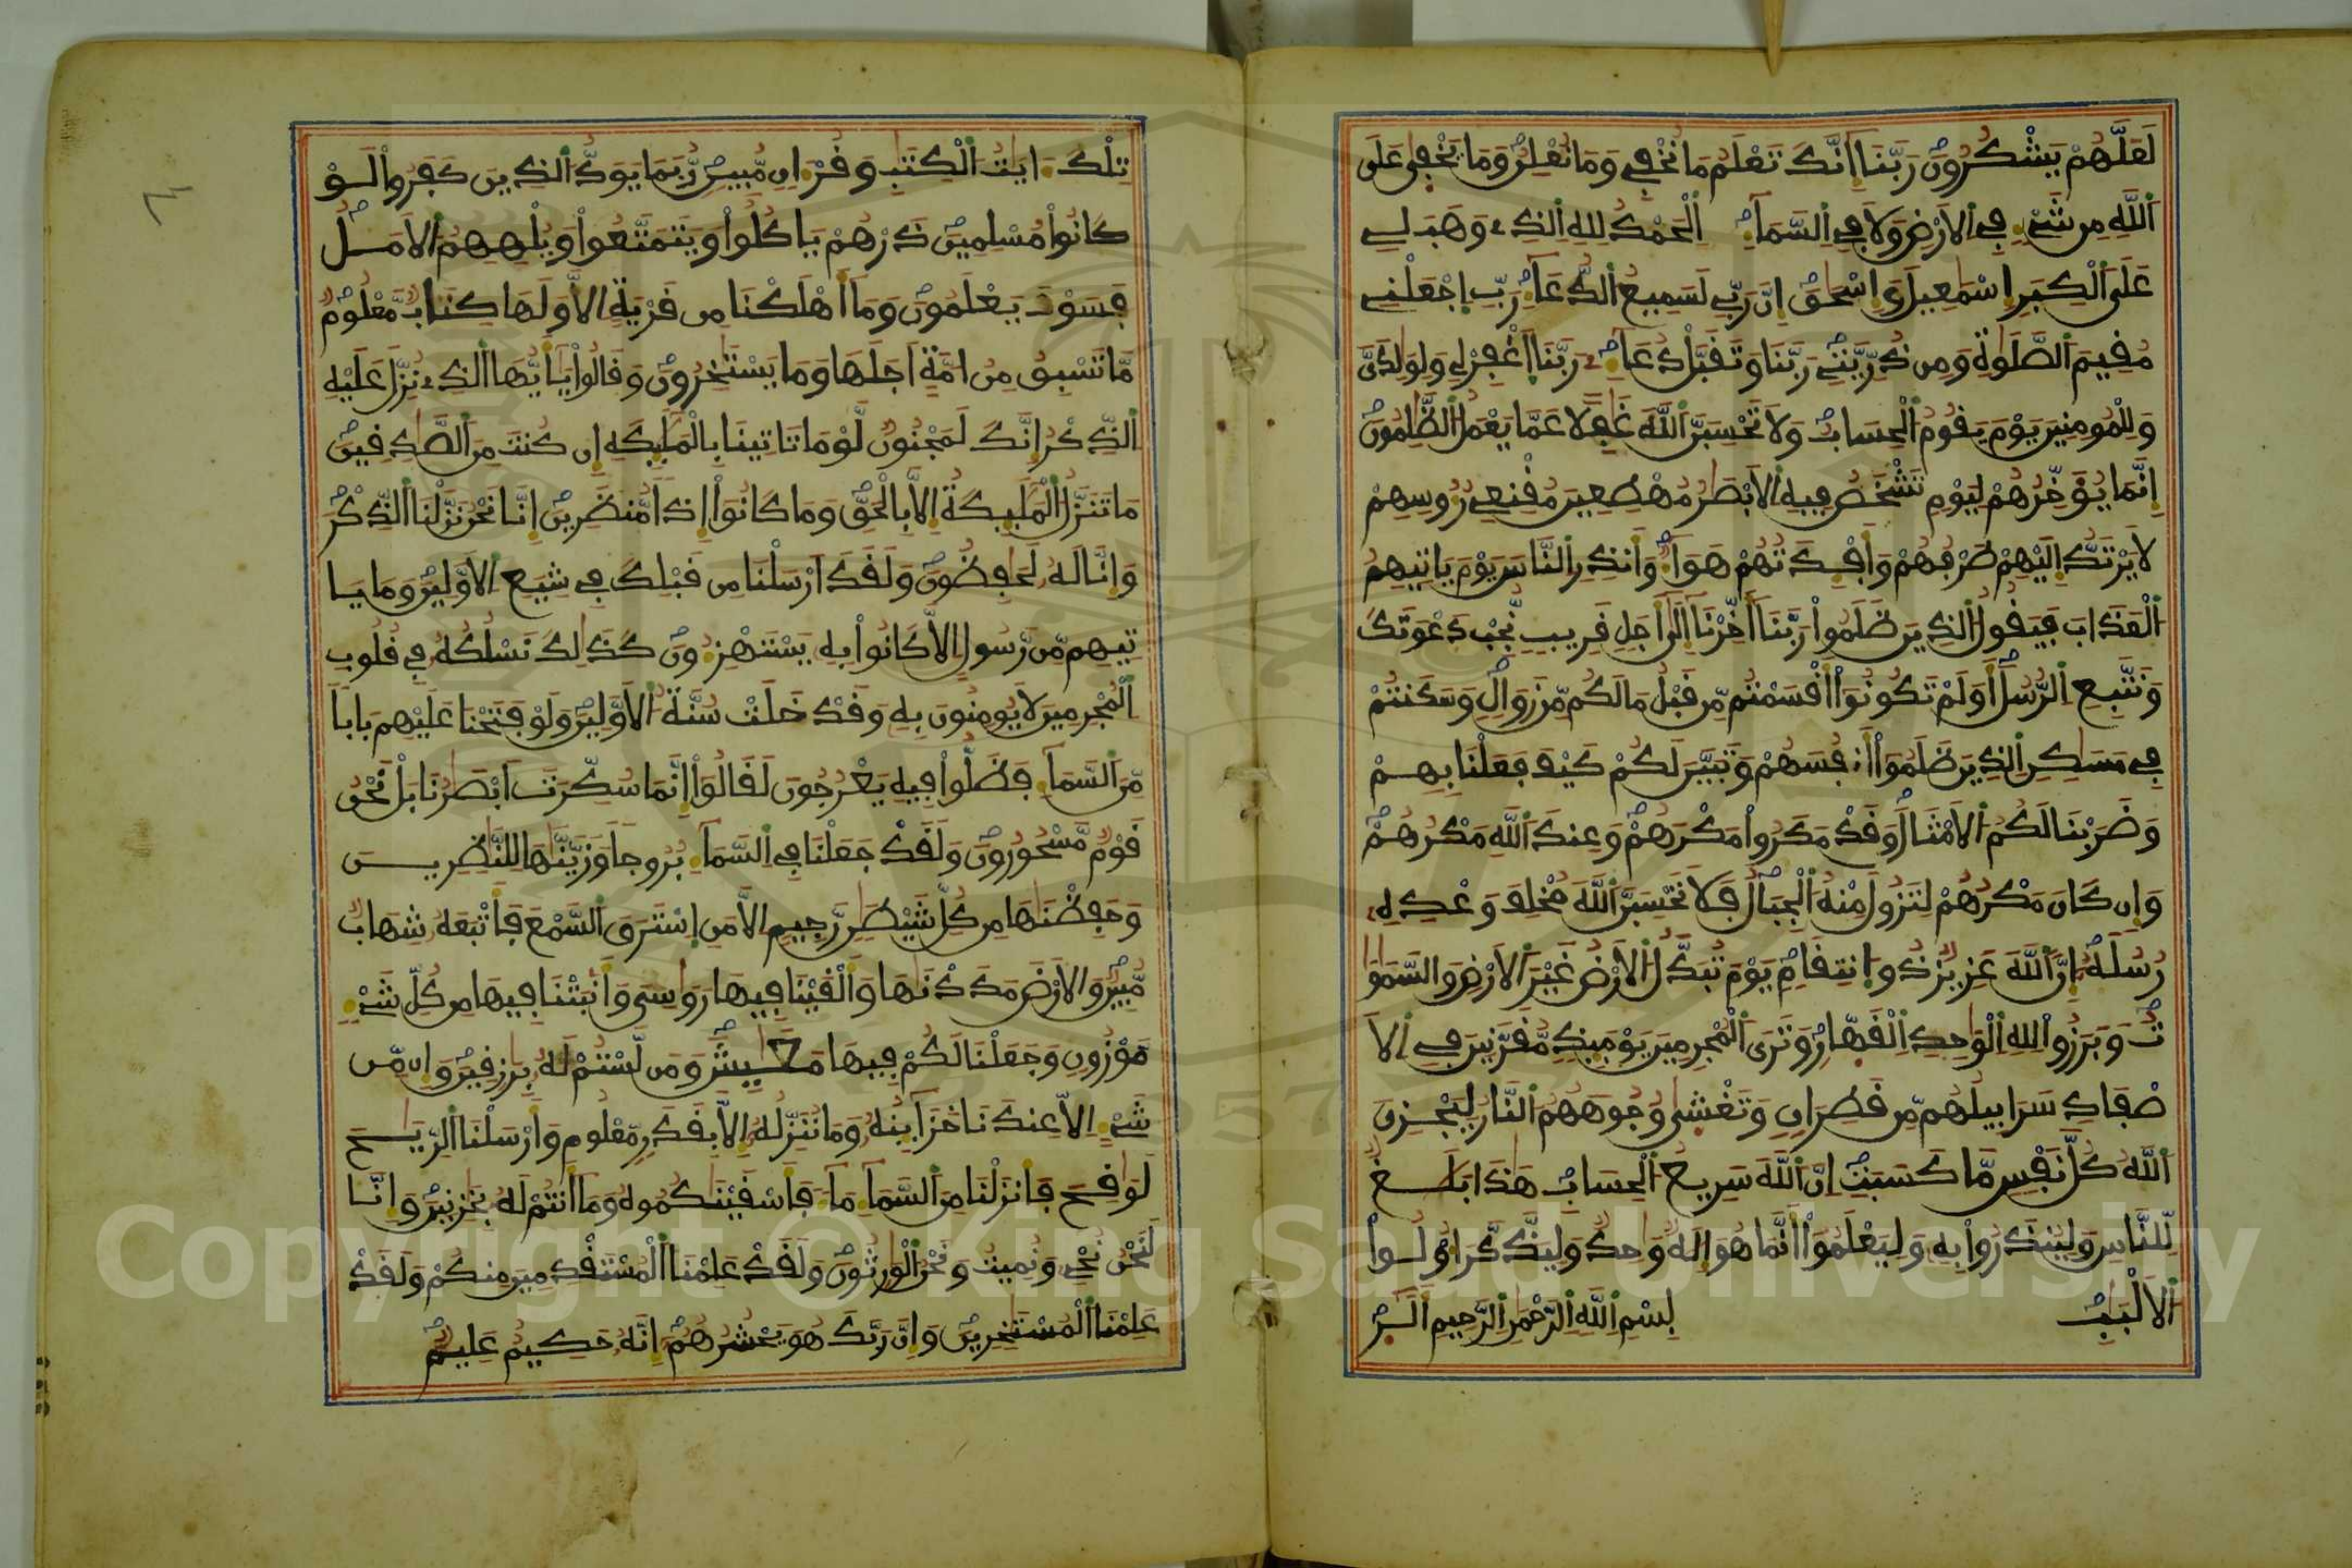 لَعَلَّهُمْ يَشْكُرُونَ رَبَّنَا إِنَّكَ تَعْلَمُ مَا نُخْفِي وَمَا نُعْلِنُ وَمَا يَخْفَى عَلَى
اَللَّهِ مِن شَيْءٍ فِي اِلَارْضِ وَلَا فِي اِلسَّمَآءِ اِلْحَمْدُ لِلهِ اِلذِي وَهَبَ لِي
عَلَى اَلْكِبَرِ إِسْمَعِيلَ وَإِسْحَقَ إِنَّ رَبِّي لَسَمِيعُ اُلدُّعَآءِ رَبِّ اِجْعَلْنِي
مُقِيمَ اَلصَّلَوةِ وَمِن ذُرِّيَّتِي رَبَّنَا وَتَقَبَّلْ دُعَآءِ رَبَّنَا اَغْفِرْ لِي وَلِوَلِدَيَّ
وَلِلْمُومِنِينَ يَوْمَ يَقُومُ اُلْحِسَابُ وَلَا تَحْسَبَنَّ اَللَّهَ غَفِلًا عَمَّا يَعْمَلُ اُلظَّلِمُونَ
إِنَّمَا يُؤَخِّرُهُمْ لِيَوْمٍ تَشْخَصُ فِيهِ اِلَابْصَرُ مُهْطِعِينَ مُقْنِعِي رُءُوسِهِمْ
لَا يَرْتَدُّ إِلَيْهِمْ طَرْفُهُمْ وَأَفْـِٕدَتُهُمْ هَوَآءٌ وَأَنذِرِ اِلنَّاسَ يَوْمَ يَاتِيهِمُ
اُلْعَذَابُ فَيَقُولُ اُلذِينَ ظَلَمُوا رَبَّنَا أَخِّرْنَا إِلَى أَجَلٍ قَرِيبٍ نُّجِبْ دَعْوَتَكَ
وَنَتَّبِعِ اِلرُّسُلَ أَوَلَمْ تَكُونُوا أَقْسَمْتُم مِّن قَبْلُ مَا لَكُم مِّن زَوَالٍ وَسَكَنتُمْ
فِي مَسَكِنِ اِلذِينَ ظَلَمُوا أَنفُسَهُمْ وَتَبَيَّنَ لَكُمْ كَيْفَ فَعَلْنَا بِهِمْ
وَضَرَبْنَا لَكُمُ اُلَامْثَالَ وَقَدْ مَكَرُوا مَكْرَهُمْ وَعِندَ اَللَّهِ مَكْرُهُمْ
وَإِن كَانَ مَكْرُهُمْ لِتَزُولَ مِنْهُ اُلْجِبَالُ فَلَا تَحْسَبَنَّ اَللَّهَ مُخْلِفَ وَعْدِهِ
رُسُلَهُ إِنَّ اَللَّهَ عَزِيزٌ ذُو اِنتِقَامٍ يَوْمَ تُبَدَّلُ اُلَارْضُ غَيْرَ اَلَارْضِ وَالسَّمَوَا
تُ وَبَرَزُوا لِلهِ اِلْوَاحِدِ اِلْقَهَّارِ وَتَرَى اَلْمُجْرِمِينَ يَوْمَئِذٍ مُّقَرَّنِينَ فِي اِلَا
صْفَادِ سَرَابِيلُهُم مِّن قَطِرَانٍ وَتَغْشَى وُجُوهَهُمُ اُلنَّارُ لِيَجْزِيَ
اَللَّهُ كُلَّ نَفْسٍ مَّا كَسَبَتِ اِنَّ اَللَّهَ سَرِيعُ اُلْحِسَابِ هَذَا بَلَغٌ
لِّلنَّاسِ وَلِيُنذَرُوا بِهِ وَلِيَعْلَمُوا أَنَّمَا هُوَ إِلَهٌ وَاحِدٌ وَلِيَذَّكَّرَ أُوْلُوا
اُلَالْبَبِ بِسْمِ اِللَّهِ اِلرَّحْمَنِ اِلرَّحِيمِ أَلَر
تِلْكَ ءَايَتُ اُلْكِتَبِ وَقُرْءَانٍ مُّبِينٍ رُّبَمَا يَوَدُّ اُلذِينَ كَفَرُوا لَوْ
كَانُوا مُسْلِمِينَ ذَرْهُمْ يَاكُلُوا وَيَتَمَتَّعُوا وَيُلْهِهِمُ اُلَامَلُ
فَسَوْفَ يَعْلَمُونَ وَمَا أَهْلَكْنَا مِن قَرْيَةٍ اِلَّا وَلَهَا كِتَابٌ مَّعْلُومٌ
مَّا تَسْبِقُ مِنُ امَّةٍ اَجَلَهَا وَمَا يَسْتَخِرُونَ وَقَالُوا يَأَيُّهَا اَلذِي نُزِّلَ عَلَيْهِ
اِلذِّكْرُ إِنَّكَ لَمَجْنُونٌ لَّوْ مَا تَاتِينَا بِالْمَلَئِكَةِ إِن كُنتَ مِنَ اَلصَّدِقِينَ
مَا تَنَزَّلُ اُلْمَلَئِكَةُ إِلَّا بِالْحَقِّ وَمَا كَانُوا إِذاً مُّنظَرِينَ إِنَّا نَحْنُ نَزَّلْنَا اَلذِّكْرَ
وَإِنَّا لَهُ لَحَفِظُونَ وَلَقَدَ اَرْسَلْنَا مِن قَبْلِكَ فِي شِيَعِ اِلَاوَّلِينَ وَمَا يَا
تِيهِم مِّن رَّسُولٍ اِلَّا كَانُوا بِهِ يَسْتَهْزِءُونَ كَذَلِكَ نَسْلُكُهُ فِي قُلُوبِ
اِلْمُجْرِمِينَ لَا يُومِنُونَ بِهِ وَقَدْ خَلَتْ سُنَّةُ اُلَاوَّلِينَ وَلَوْ فَتَحْنَا عَلَيْهِم بَاباً
مِّنَ اَلسَّمَآءِ فَظَلُّوا فِيهِ يَعْرُجُونَ لَقَالُوا إِنَّمَا سُكِّرَتَ اَبْصَرُنَا بَلْ نَحْنُ
قَوْمٌ مَّسْحُورُونَ وَلَقَدْ جَعَلْنَا فِي اِلسَّمَآءِ بُرُوجاً وَزَيَّنَّهَا لِلنَّظِرِينَ
وَحَفِظْنَهَا مِن كُلِّ شَيْطَنٍ رَّجِيمٍ اِلَّا مَنِ اِسْتَرَقَ اَلسَّمْعَ فَأَتْبَعَهُ شِهَابٌ
مُّبِينٌ وَالَارْضَ مَدَدْنَهَا وَأَلْقَيْنَا فِيهَا رَوَاسِيَ وَأَنبَتْنَا فِيهَا مِن كُلِّ شَيْءٍ
مَّوْزُونٍ وَجَعَلْنَا لَكُمْ فِيهَا مَعَيِشَ وَمَن لَّسْتُمْ لَهُ بِرَزِقِينَ وَإِن مِّن
شَيْءٍ اِلَّا عِندَنَا خَزَآئِنُهُ وَمَا نُنَزِّلُهُ إِلَّا بِقَدَرٍ مَّعْلُومٍ وَأَرْسَلْنَا اَلرِّيَحَ
لَوَقِحَ فَأَنزَلْنَا مِنَ اَلسَّمَآءِ مَآءً فَأَسْقَيْنَكُمُوهُ وَمَا أَنتُمْ لَهُ بِخَزِنِينَ وَإِنَّا
لَنَحْنُ نُحْيِ وَنُمِيتُ وَنَحْنُ اُلْوَرِثُونَ وَلَقَدْ عَلِمْنَا اَلْمُسْتَقْدِمِينَ مِنكُمْ وَلَقَدْ
عَلِمْنَا اَلْمُسْتَخِرِينَ وَإِنَّ رَبَّكَ هُوَ يَحْشُرُهُمْ إِنَّهُ حَكِيمٌ عَلِيمٌ
Copyright © King Saud University